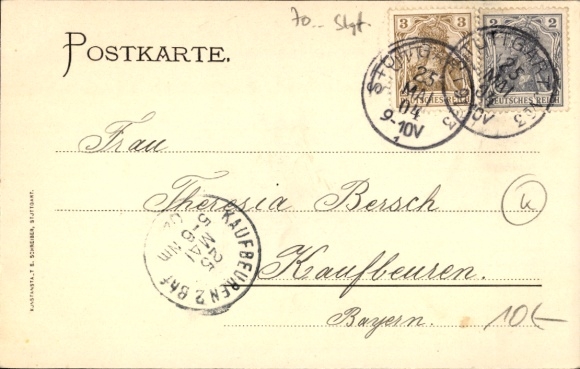 70.- Stgt.
POSTKARTE.
3 3
DEUTSCHES REICH
2 2
DEUTSCHES REICH
STUTTGART No 3
25
MAI
04
9-10V
1
STUTTGART No 3
25
MAI
04
9-10V
Frau
Theresia Bersch
Kaufbeuren.
Bayern.
KAUFBEUREN 2 Bhf
25
MAI
Nm
KUNSTANSTALT E. SCHREIBER, STUTTGART.
10.-